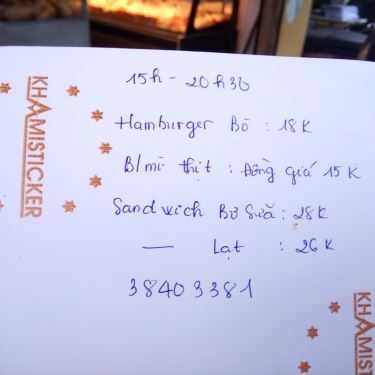 15h - 20h30
Hamburger Bò : 18K
B/mì thịt : Đồng giá 15K
Sandwich Bơ Sữa : 28K
— Lạt : 26K
38403381
KHAMISTICKER
KHAMISTICKER